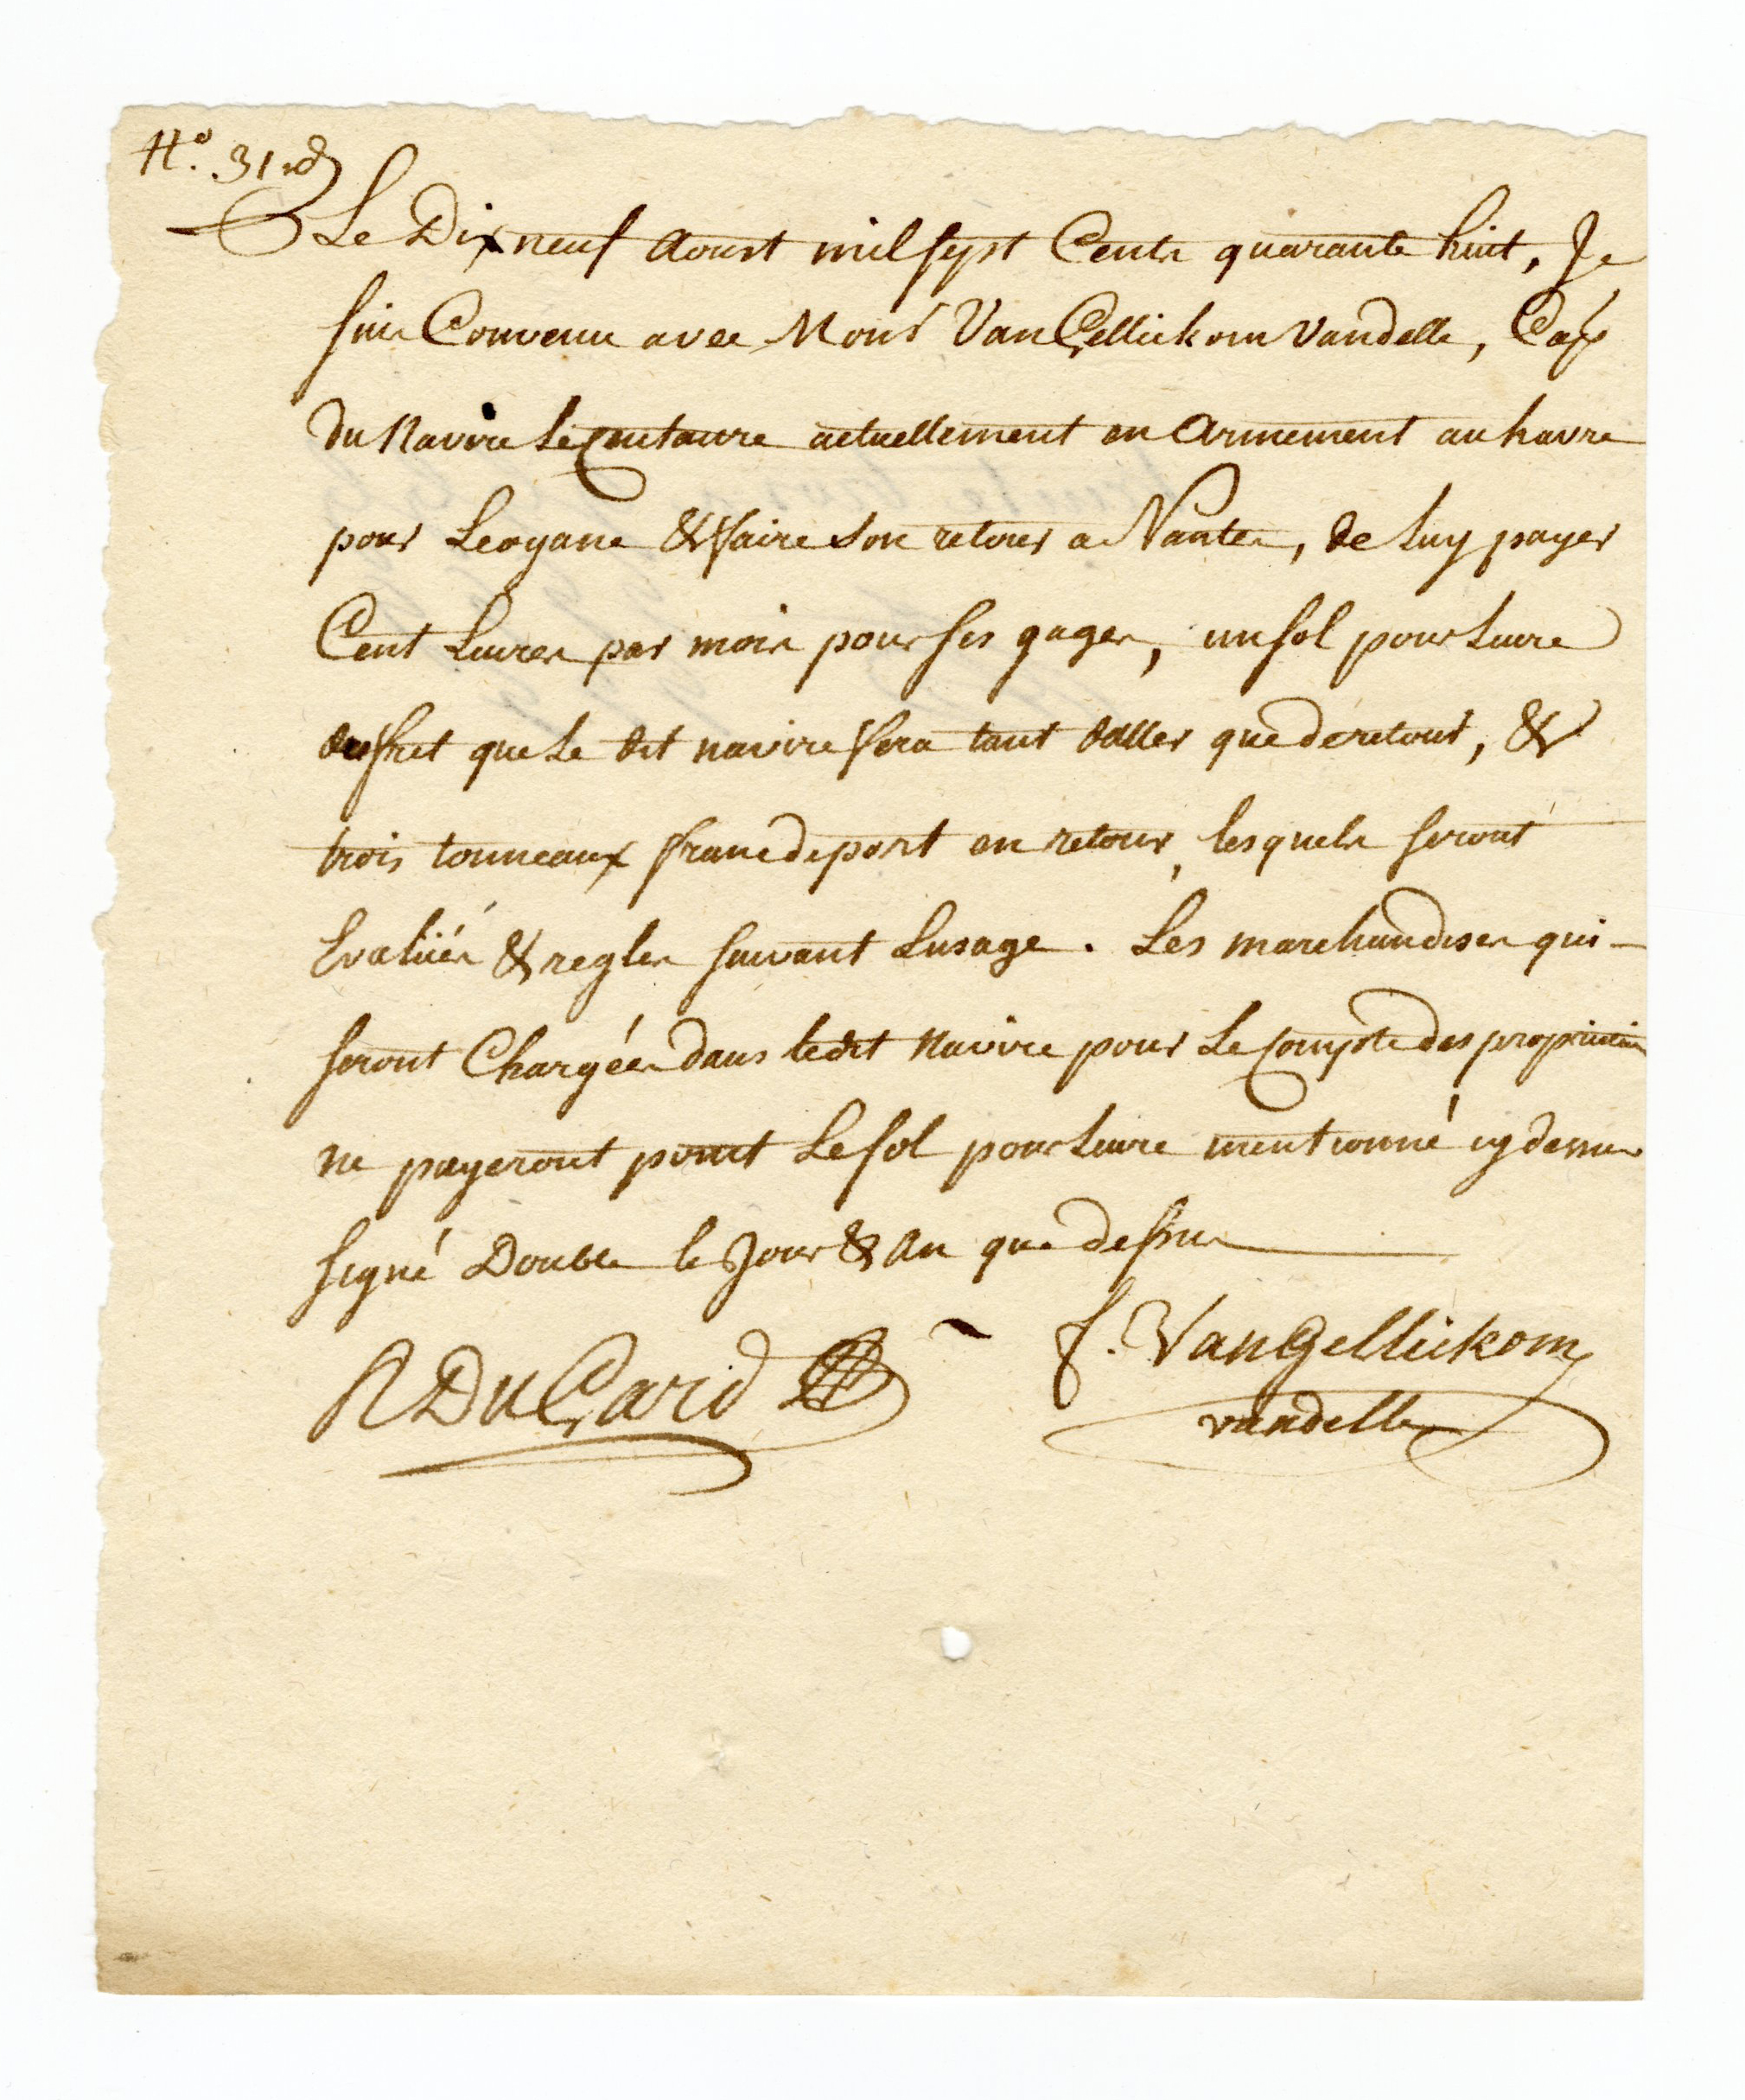 N.º 31.
Le Dixneuf Aoust mil sept Cents quarante huit, Je
suis Convenu avec Monsr Van Gellickom Vandelle, Cape
du Navire Le Centaure actuellement en Armement au havre
pour Leogane & faire son retour a Nantes, de Luy payer
Cent Livres par mois pour ses gages, un sol pour Livre
du fret que Le dit navire fera tant daller que de retour, &
trois tonneaux franc de port en retour, lesquels seront
Evalüés & regles suivant Lusage. Les marchandises qui
seront Chargées dans ledit Navire pour Le Compte des proprietaires
ne payeront point Le sol pour Livre mentionné cy dessus
signé Double le Jour & An que dessus
R DuGard
f. VanGellickom
vandelle